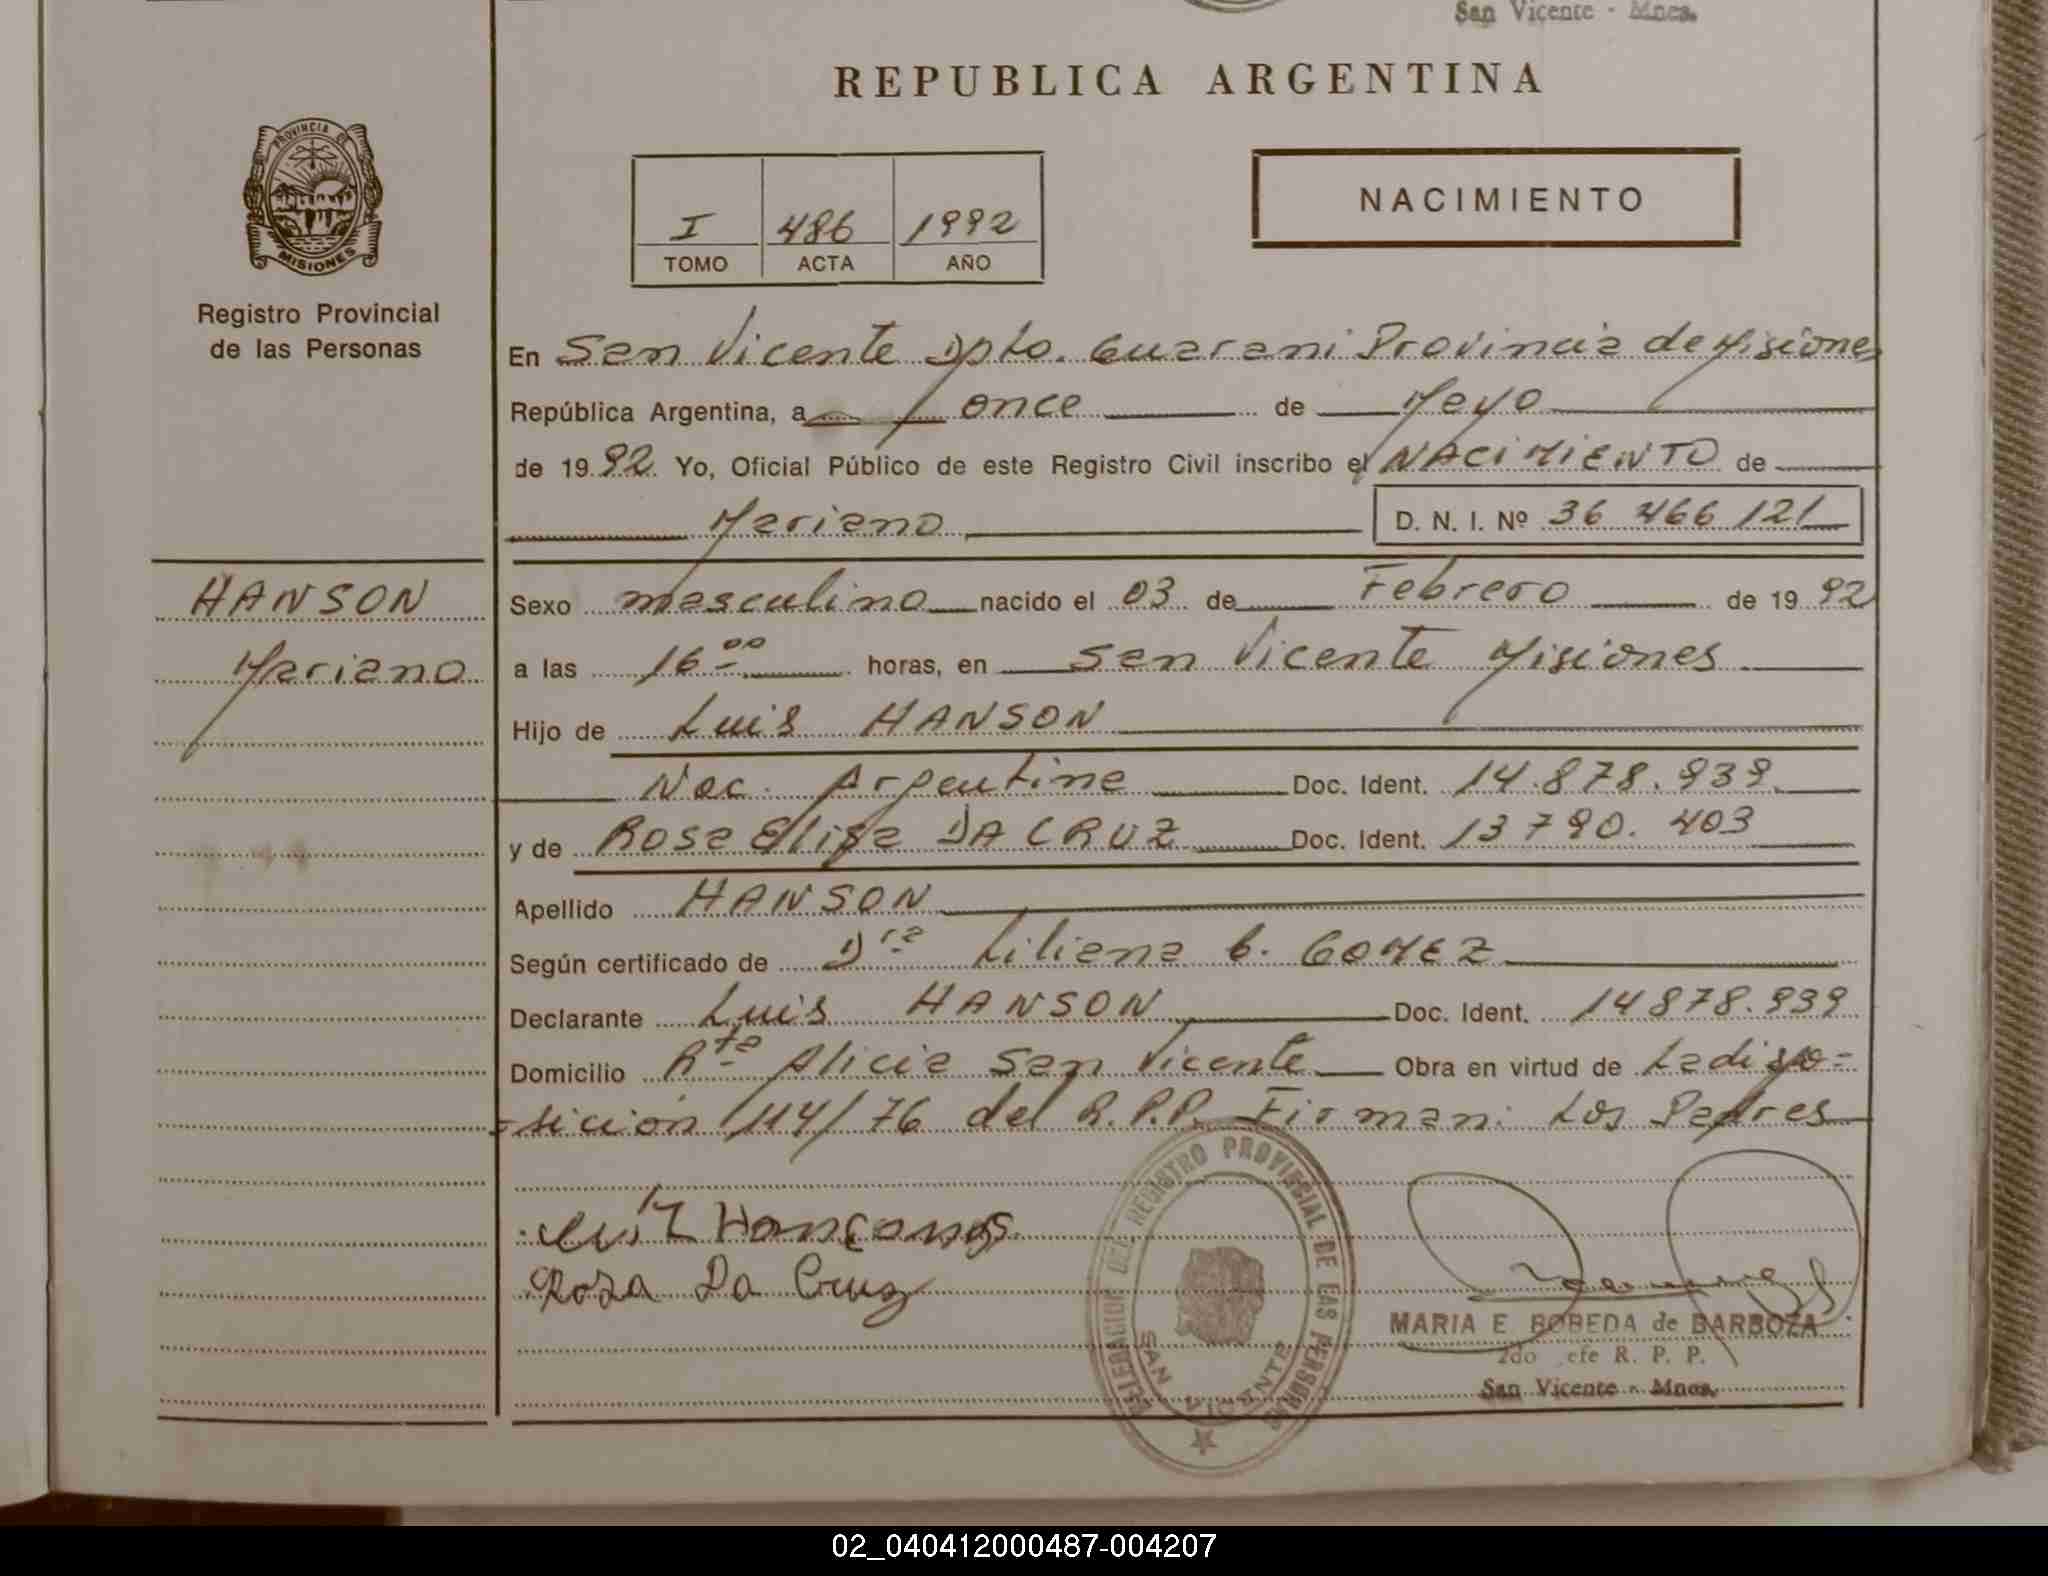 San Vicente - Mnes.
REPUBLICA ARGENTINA
PROVINCIA DE
MISIONES
Registro Provincial
de las Personas
I 486 1992
TOMO ACTA AÑO
NACIMIENTO
En San Vicente Dpto. Guarani Provincia de Misiones
República Argentina, a once de Mayo
de 1992 Yo, Oficial Público de este Registro Civil inscribo el NACIMIENTO de
Mariano D. N. I. Nº 36 466 121
HANSON
Mariano
Sexo masculino nacido el 03 de Febrero de 1992
a las 16 00 horas, en San Vicente Misiones
Hijo de Luis HANSON
Nac. Argentina Doc. Ident. 14.878.939.
y de Rosa Elisa DA CRUZ Doc. Ident. 13 790. 403
Apellido HANSON
Según certificado de Dra Liliana G. GOMEZ
Declarante Luis HANSON Doc. Ident. 14878.939
Domicilio Rta Alicia San Vicente Obra en virtud de La dispo=
=sicion 114/76 del R.P.P. Firman: Los Padres
Rosa Da Cruz
DELEGACION DEL REGISTRO PROVINCIAL DE LAS PERSONAS
SAN VICENTE
MARIA E BOBEDA de BARBOZA
2do Jefe R. P. P.
San Vicente - Mnes.
02_040412000487-004207